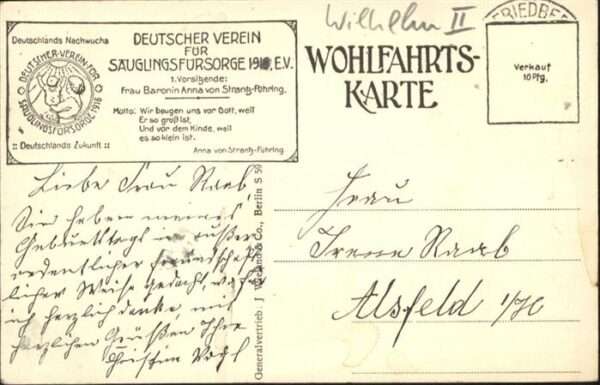 Wilhelm II
FRIEDBE
Deutschlands Nachwuchs
DEUTSCHER-VEREIN-FÜR
SÄUGLINGSFÜRSORGE 1916
:: Deutschlands Zukunft ::
DEUTSCHER VEREIN
FÜR
SÄUGLINGSFÜRSORGE 1916, E.V.
1. Vorsitzende:
Frau Baronin Anna von Strantz-Führing.
Motto: Wir beugen uns vor Gott, weil
Er so groß ist,
Und vor dem Kinde, weil
es so klein ist.
Anna von Strantz-Führing.
WOHLFAHRTS-
KARTE
Verkauf
10 Pfg.
Liebe Frau Raab,
Sie haben meines
Geburtstags in außer
ordentlicher freundschaft
licher Weise gedacht, wofür
ich herzlich danke, mit
herzlichen Grüßen Ihre
Christine
Generalvertrieb: J & Co., Berlin S 59
Frau
Irene Raab
Alsfeld i/H